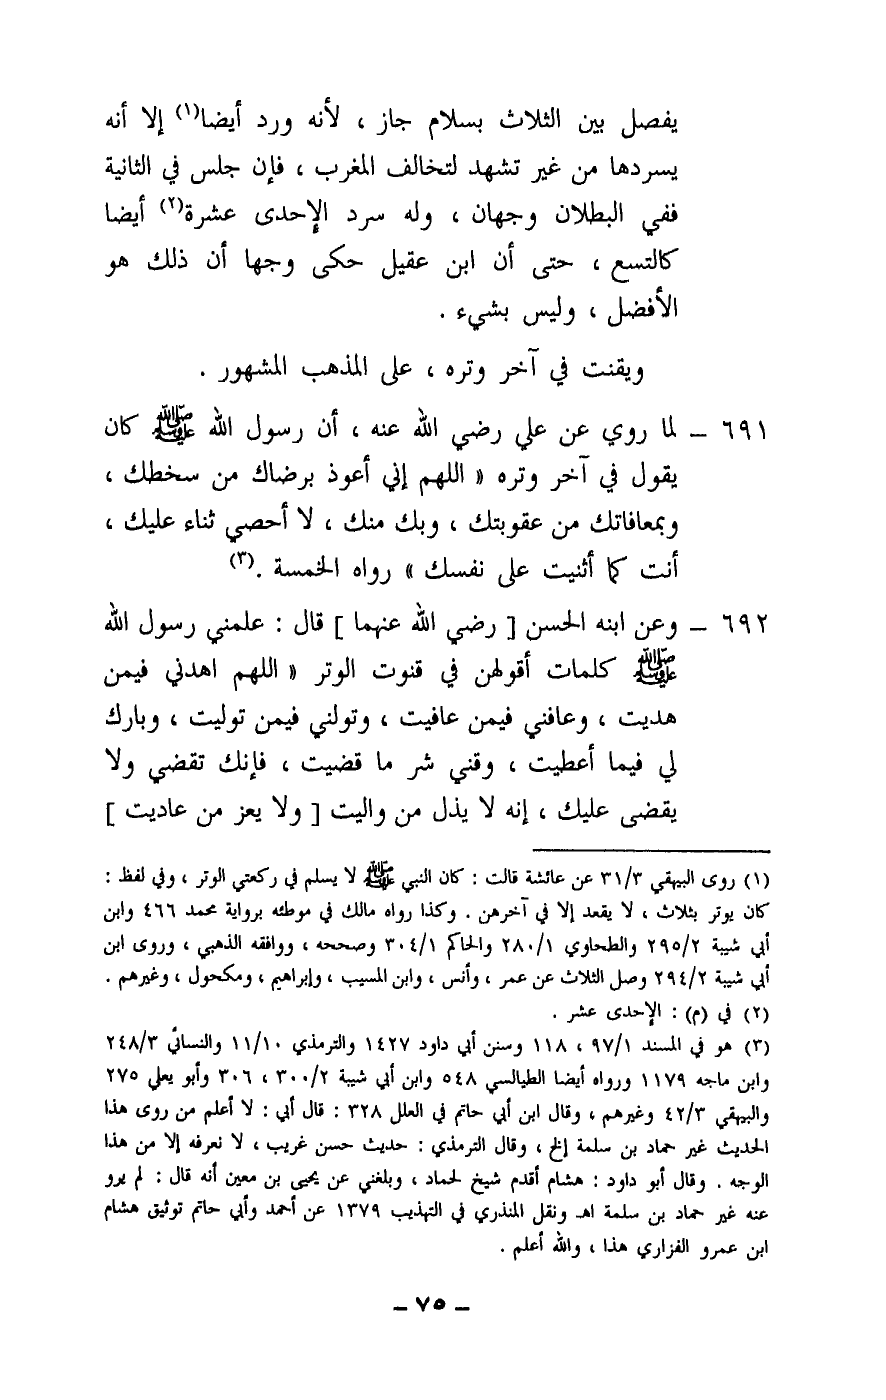 يفصل بين الثلاث بسلام جاز ، لأنه ورد أيضا(١) إلا أنه
يسردها من غير تشهد لتخالف المغرب ، فإن جلس في الثانية
ففي البطلان وجهان ، وله سرد الإحدى عشرة(٢) أيضا
كالتسع ، حتى أن ابن عقيل حكى وجها أن ذلك هو
الأفضل ، وليس بشيء .
ويقنت في آخر وتره ، على المذهب المشهور .
٦٩١ – لما روي عن علي رضي الله عنه ، أن رسول الله ﷺ كان
يقول في آخر وتره « اللهم إني أعوذ برضاك من سخطك ،
وبمعافاتك من عقوبتك ، وبك منك ، لا أحصي ثناء عليك ،
أنت كما أثنيت على نفسك » رواه الخمسة .(٣)
٦٩٢ – وعن ابنه الحسن [ رضي الله عنهما ] قال : علمني رسول الله
ﷺ كلمات أقولهن في قنوت الوتر « اللهم اهدني فيمن
هديت ، وعافني فيمن عافيت ، وتولني فيمن توليت ، وبارك
لي فيما أعطيت ، وقني شر ما قضيت ، فإنك تقضي ولا
يقضى عليك ، إنه لا يذل من واليت [ ولا يعز من عاديت ]
(١) روى البيهقي ٣١/٣ عن عائشة قالت : كان النبي ﷺ لا يسلم في ركعتي الوتر ، وفي لفظ :
كان يوتر بثلاث ، لا يقعد إلا في آخرهن . وكذا رواه مالك في موطئه برواية محمد ٤٦٦ وابن
أبي شيبة ٢٩٥/٢ والطحاوي ٢٨٠/١ والحاكم ٣٠٤/١ وصححه ، ووافقه الذهبي ، وروى ابن
أبي شيبة ٢٩٤/٢ وصل الثلاث عن عمر ، وأنس ، وابن المسيب ، وإبراهيم ، ومكحول ، وغيرهم .
(٢) في (م) : الإحدى عشر .
(٣) هو في المسند ٩٧/١ ، ١١٨ وسنن أبي داود ١٤٢٧ والترمذي ١١/١٠ والنسائي ٢٤٨/٣
وابن ماجه ١١٧٩ ورواه أيضا الطيالسي ٥٤٨ وابن أبي شيبة ٣٠٠/٢ ، ٣٠٦ وأبو يعلى ٢٧٥
والبيهقي ٤٢/٣ وغيرهم ، وقال ابن أبي حاتم في العلل ٣٢٨ : قال أبي : لا أعلم من روى هذا
الحديث غير حماد بن سلمة إلخ ، وقال الترمذي : حديث حسن غريب ، لا نعرفه إلا من هذا
الوجه . وقال أبو داود : هشام أقدم شيخ لحماد ، وبلغني عن يحيى بن معين أنه قال : لم يرو
عنه غير حماد بن سلمة اهـ ونقل المنذري في التهذيب ١٣٧٩ عن أحمد وأبي حاتم توثيق هشام
ابن عمرو الفزاري هذا ، والله أعلم .
– ٧٥ –